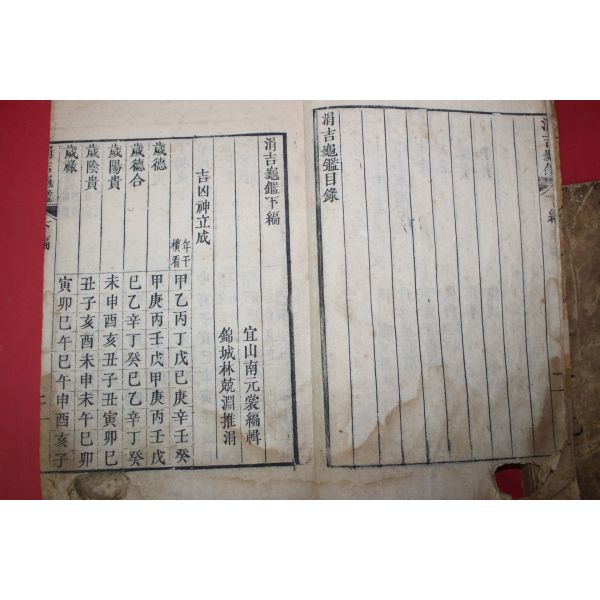 涓吉龜鑑 下編
涓吉龜鑑目錄
涓吉龜鑑下編
宜山南元裳編輯
錦城林兢淵推涓
吉凶神立成
年干橫看 甲乙丙丁戊己庚辛壬癸
歲德 甲庚丙壬戊甲庚丙壬戊
歲德合 己乙辛丁癸己乙辛丁癸
歲陽貴 未申酉亥丑子丑寅卯巳
歲陰貴 丑子亥酉未申未午巳卯
歲祿 寅卯巳午巳午申酉亥子